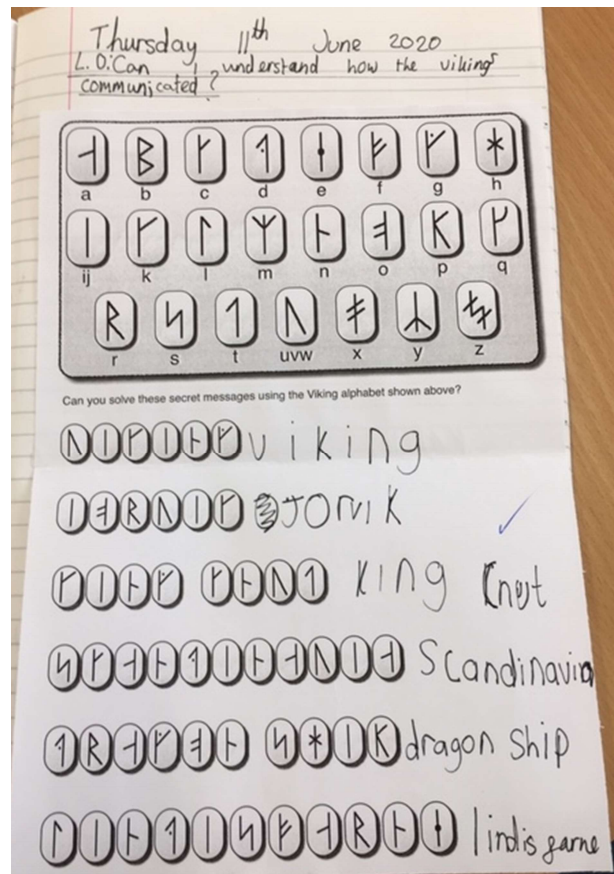 Thursday 11th June 2020
L.O: Can I understand how the vikings
communicated?
a b c d e f g h
ij k l m n o p q
r s t uvw x y z
Can you solve these secret messages using the Viking alphabet shown above?
viking
JORVIK
King Cnut
Scandinavia
dragon ship
lindisfarne